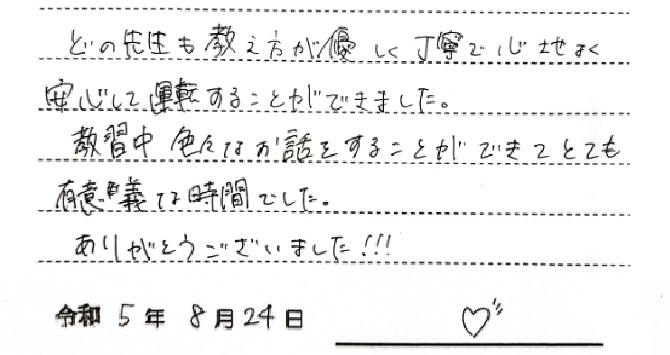 どの先生も教え方が優しく丁寧で心強く
安心して運転することができました。
教習中色々なお話をすることができてとても
有意義な時間でした。
ありがとうございました!!!
令和 5年 8月24日